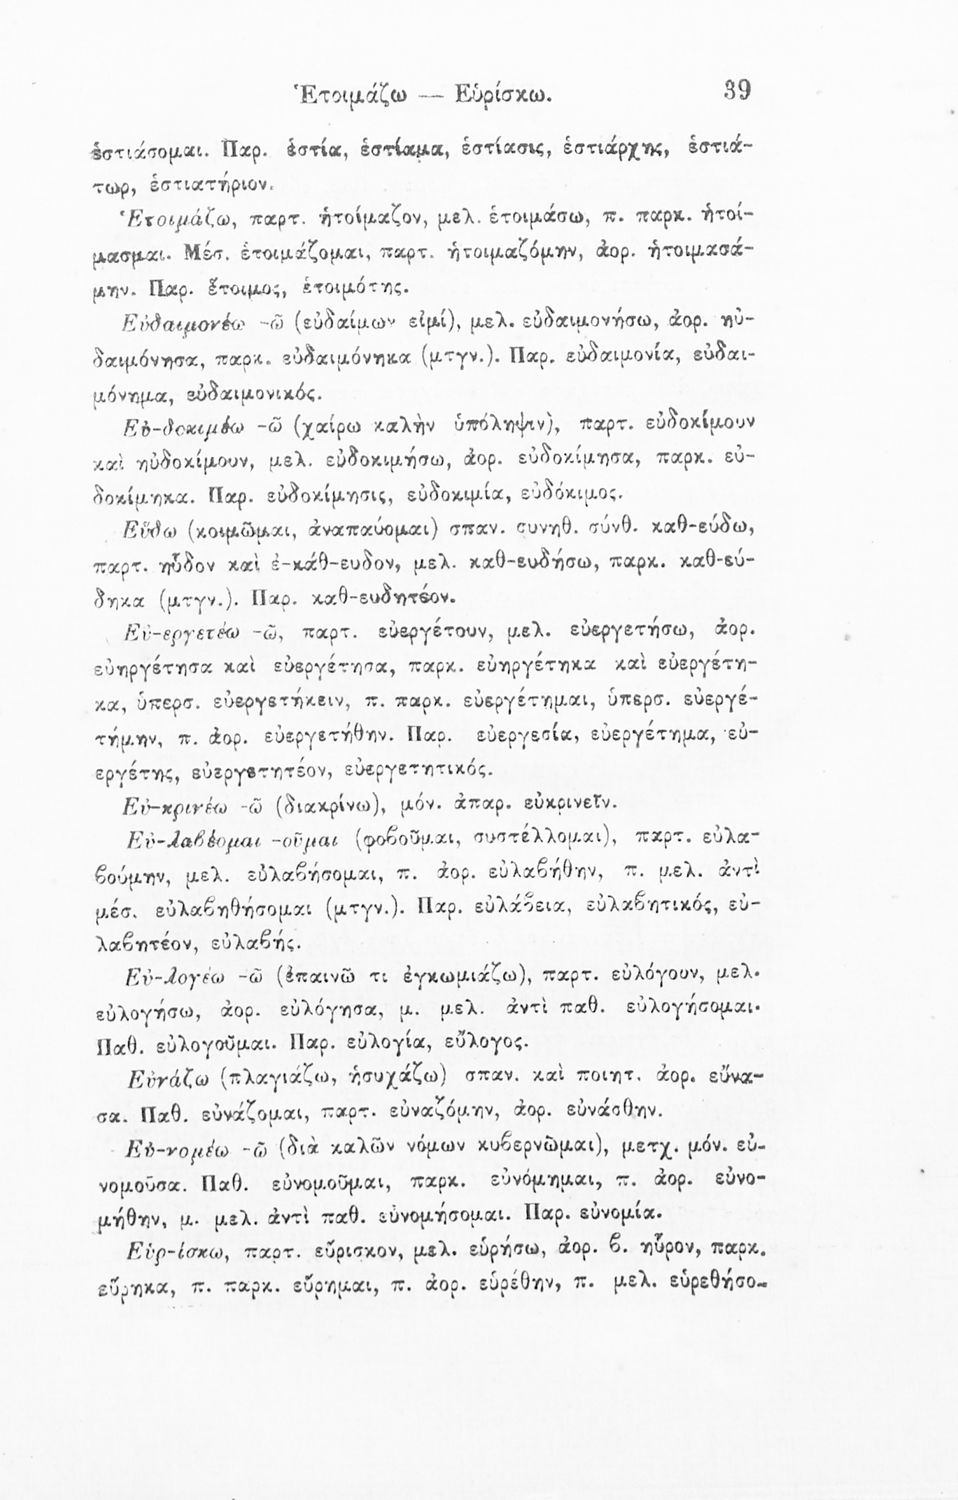 Ἑτοιμάζω — Εὑρίσκω. 39
ἑστιάσομαι. Παρ. ἑστία, ἑστίαμα, ἑστίασις, ἑστιάρχης, ἑστιά-
τωρ, ἑστιατήριον.
Ἑτοιμάζω, παρτ. ἡτοίμαζον, μελ. ἑτοιμάσω, π. παρκ. ἡτοί-
μασμαι. Μέσ. ἑτοιμάζομαι, παρτ. ἡτοιμαζόμην, ἀορ. ἡτοιμασά-
μην. Παρ. ἕτοιμος, ἑτοιμότης.
Εὐδαιμονέω -ῶ (εὐδαίμων εἰμί), μελ. εὐδαιμονήσω, ἀορ. ηὐ-
δαιμόνησα, παρκ. εὐδαιμόνηκα (μτγν.). Παρ. εὐδαιμονία, εὐδαι-
μόνημα, εὐδαιμονικός.
Εὐ-δοκιμέω -ῶ (χαίρω καλὴν ὑπόληψιν), παρτ. εὐδοκίμουν
καὶ ηὐδοκίμουν, μελ. εὐδοκιμήσω, ἀορ. εὐδοκίμησα, παρκ. εὐ-
δοκίμηκα. Παρ. εὐδοκίμησις, εὐδοκιμία, εὐδόκιμος.
Εὕδω (κοιμῶμαι, ἀναπαύομαι) σπαν. συνηθ. σύνθ. καθ-εύδω,
παρτ. ηὗδον καὶ ἐ-κάθ-ευδον, μελ. καθ-ευδήσω, παρκ. καθ-εύ-
δηκα (μτγν.). Παρ. καθ-ευδητέον.
Εὐ-εργετέω -ῶ, παρτ. εὐεργέτουν, μελ. εὐεργετήσω, ἀορ.
εὐηργέτησα καὶ εὐεργέτησα, παρκ. εὐηργέτηκα καὶ εὐεργέτη-
κα, ὑπερσ. εὐεργετήκειν, π. παρκ. εὐεργέτημαι, ὑπερσ. εὐεργε-
τήμην, π. ἀορ. εὐεργετήθην. Παρ. εὐεργεσία, εὐεργέτημα, εὐ-
εργέτης, εὐεργετητέον, εὐεργετητικός.
Εὐ-κρινέω -ῶ (διακρίνω), μόν. ἀπαρ. εὐκρινεῖν.
Εὐ-λαβέομαι -οῦμαι (φοβοῦμαι, συστέλλομαι), παρτ. εὐλα-
βούμην, μελ. εὐλαβήσομαι, π. ἀορ. εὐλαβήθην, π. μελ. ἀντὶ
μέσ. εὐλαβηθήσομαι (μτγν.). Παρ. εὐλάβεια, εὐλαβητικός, εὐ-
λαβητέον, εὐλαβής.
Εὐ-λογέω -ῶ (ἐπαινῶ τι ἐγκωμιάζω), παρτ. εὐλόγουν, μελ.
εὐλογήσω, ἀορ. εὐλόγησα, μ. μελ. ἀντὶ παθ. εὐλογήσομαι.
Παθ. εὐλογοῦμαι. Παρ. εὐλογία, εὔλογος.
Εὐνάζω (πλαγιάζω, ἡσυχάζω) σπαν. καὶ ποιητ. ἀορ. εὔνα-
σα. Παθ. εὐνάζομαι, παρτ. εὐναζόμην, ἀορ. εὐνάσθην.
Εὐ-νομέω -ῶ (διὰ καλῶν νόμων κυβερνῶμαι), μετχ. μόν. εὐ-
νομοῦσα. Παθ. εὐνομοῦμαι, παρκ. εὐνόμημαι, π. ἀορ. εὐνο-
μήθην, μ. μελ. ἀντὶ παθ. εὐνομήσομαι. Παρ. εὐνομία.
Εὑρ-ίσκω, παρτ. εὕρισκον, μελ. εὑρήσω, ἀορ. β. ηὗρον, παρκ.
εὕρηκα, π. παρκ. εὕρημαι, π. ἀορ. εὑρέθην, π. μελ. εὑρεθήσο-